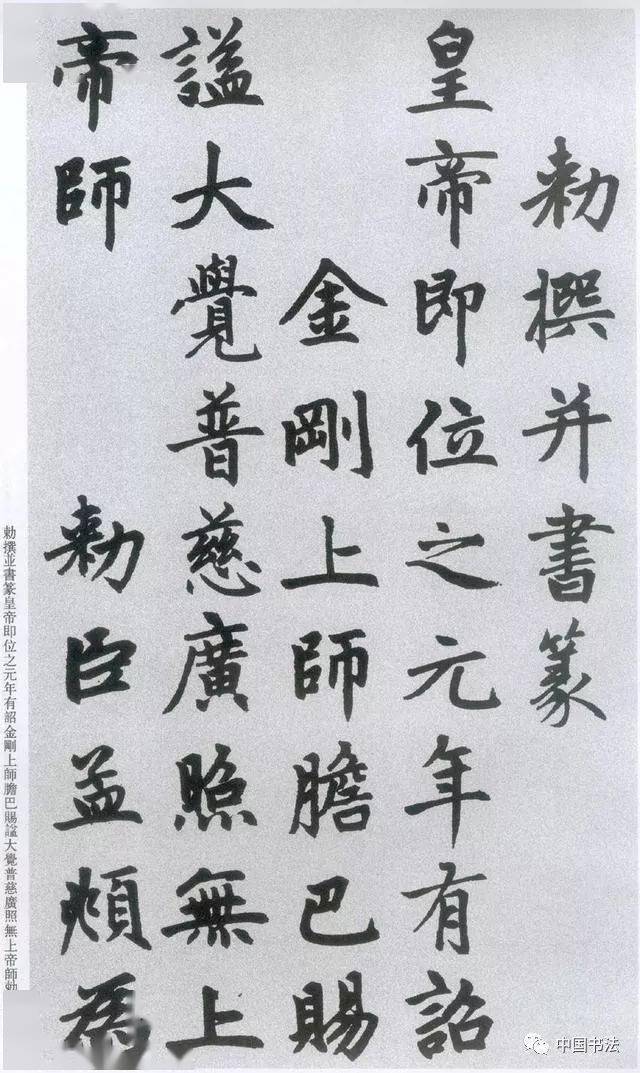 勅撰并書篆
皇帝即位之元年有詔
金剛上師膽巴賜
謚大覺普慈廣照無上
帝師
勅臣孟頫為
勅撰並書篆皇帝即位之元年有詔金剛上師膽巴賜謚大覺普慈廣照無上帝師勅
中国书法